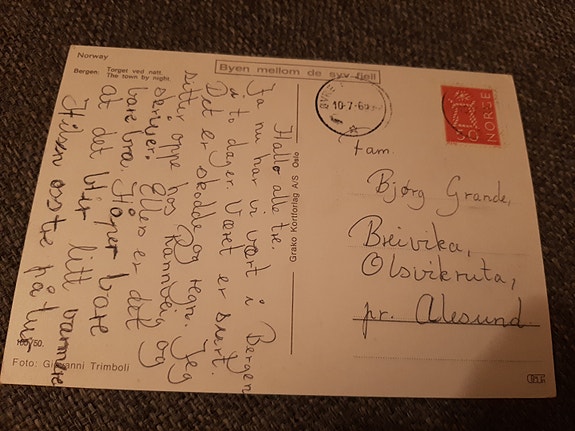 Norway
Bergen: Torget ved natt.
The town by night.
Byen mellom de syv fjell
10-7-6
50
NORGE
Hallo alle tre.
Ja nu har vi vært i Bergen
i to dager. Været er surt.
Det er skodde og regn. Jeg
sitter oppe hos Rannveig og
skriver. Ellers er det
bare bra. Håper bare
at det blir litt varmere
Hilsen
Grako Kortforlag A/S Oslo
Fam.
Bjørg Grande,
Breivika,
Olsvikruta,
pr. Ålesund
/50.
Foto: Giovanni Trimboli